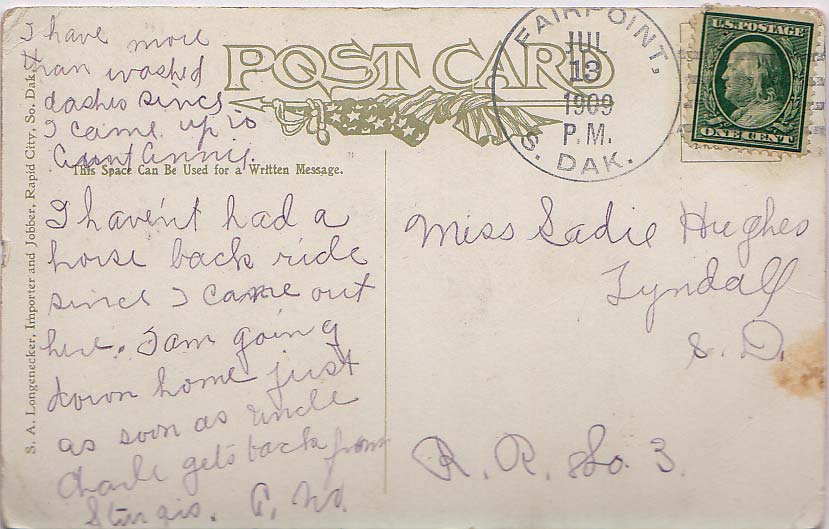 I have more
than washed
dashes since
I came up to
Aunt Annis.
POST CARD
This Space Can Be Used for a Written Message.
I haven't had a
horse back ride
since I came out
here. I am going
down home just
as soon as Uncle
Charle gets back from
Sturgis.
S. A. Longenecker, Importer and Jobber, Rapid City, So. Dak.
FAIRPOINT.
JUL
13
1909
P.M.
S. DAK.
U.S. POSTAGE
ONE CENT
Miss Sadie Hughes
Tyndall
S. D.
R. R. No. 3.